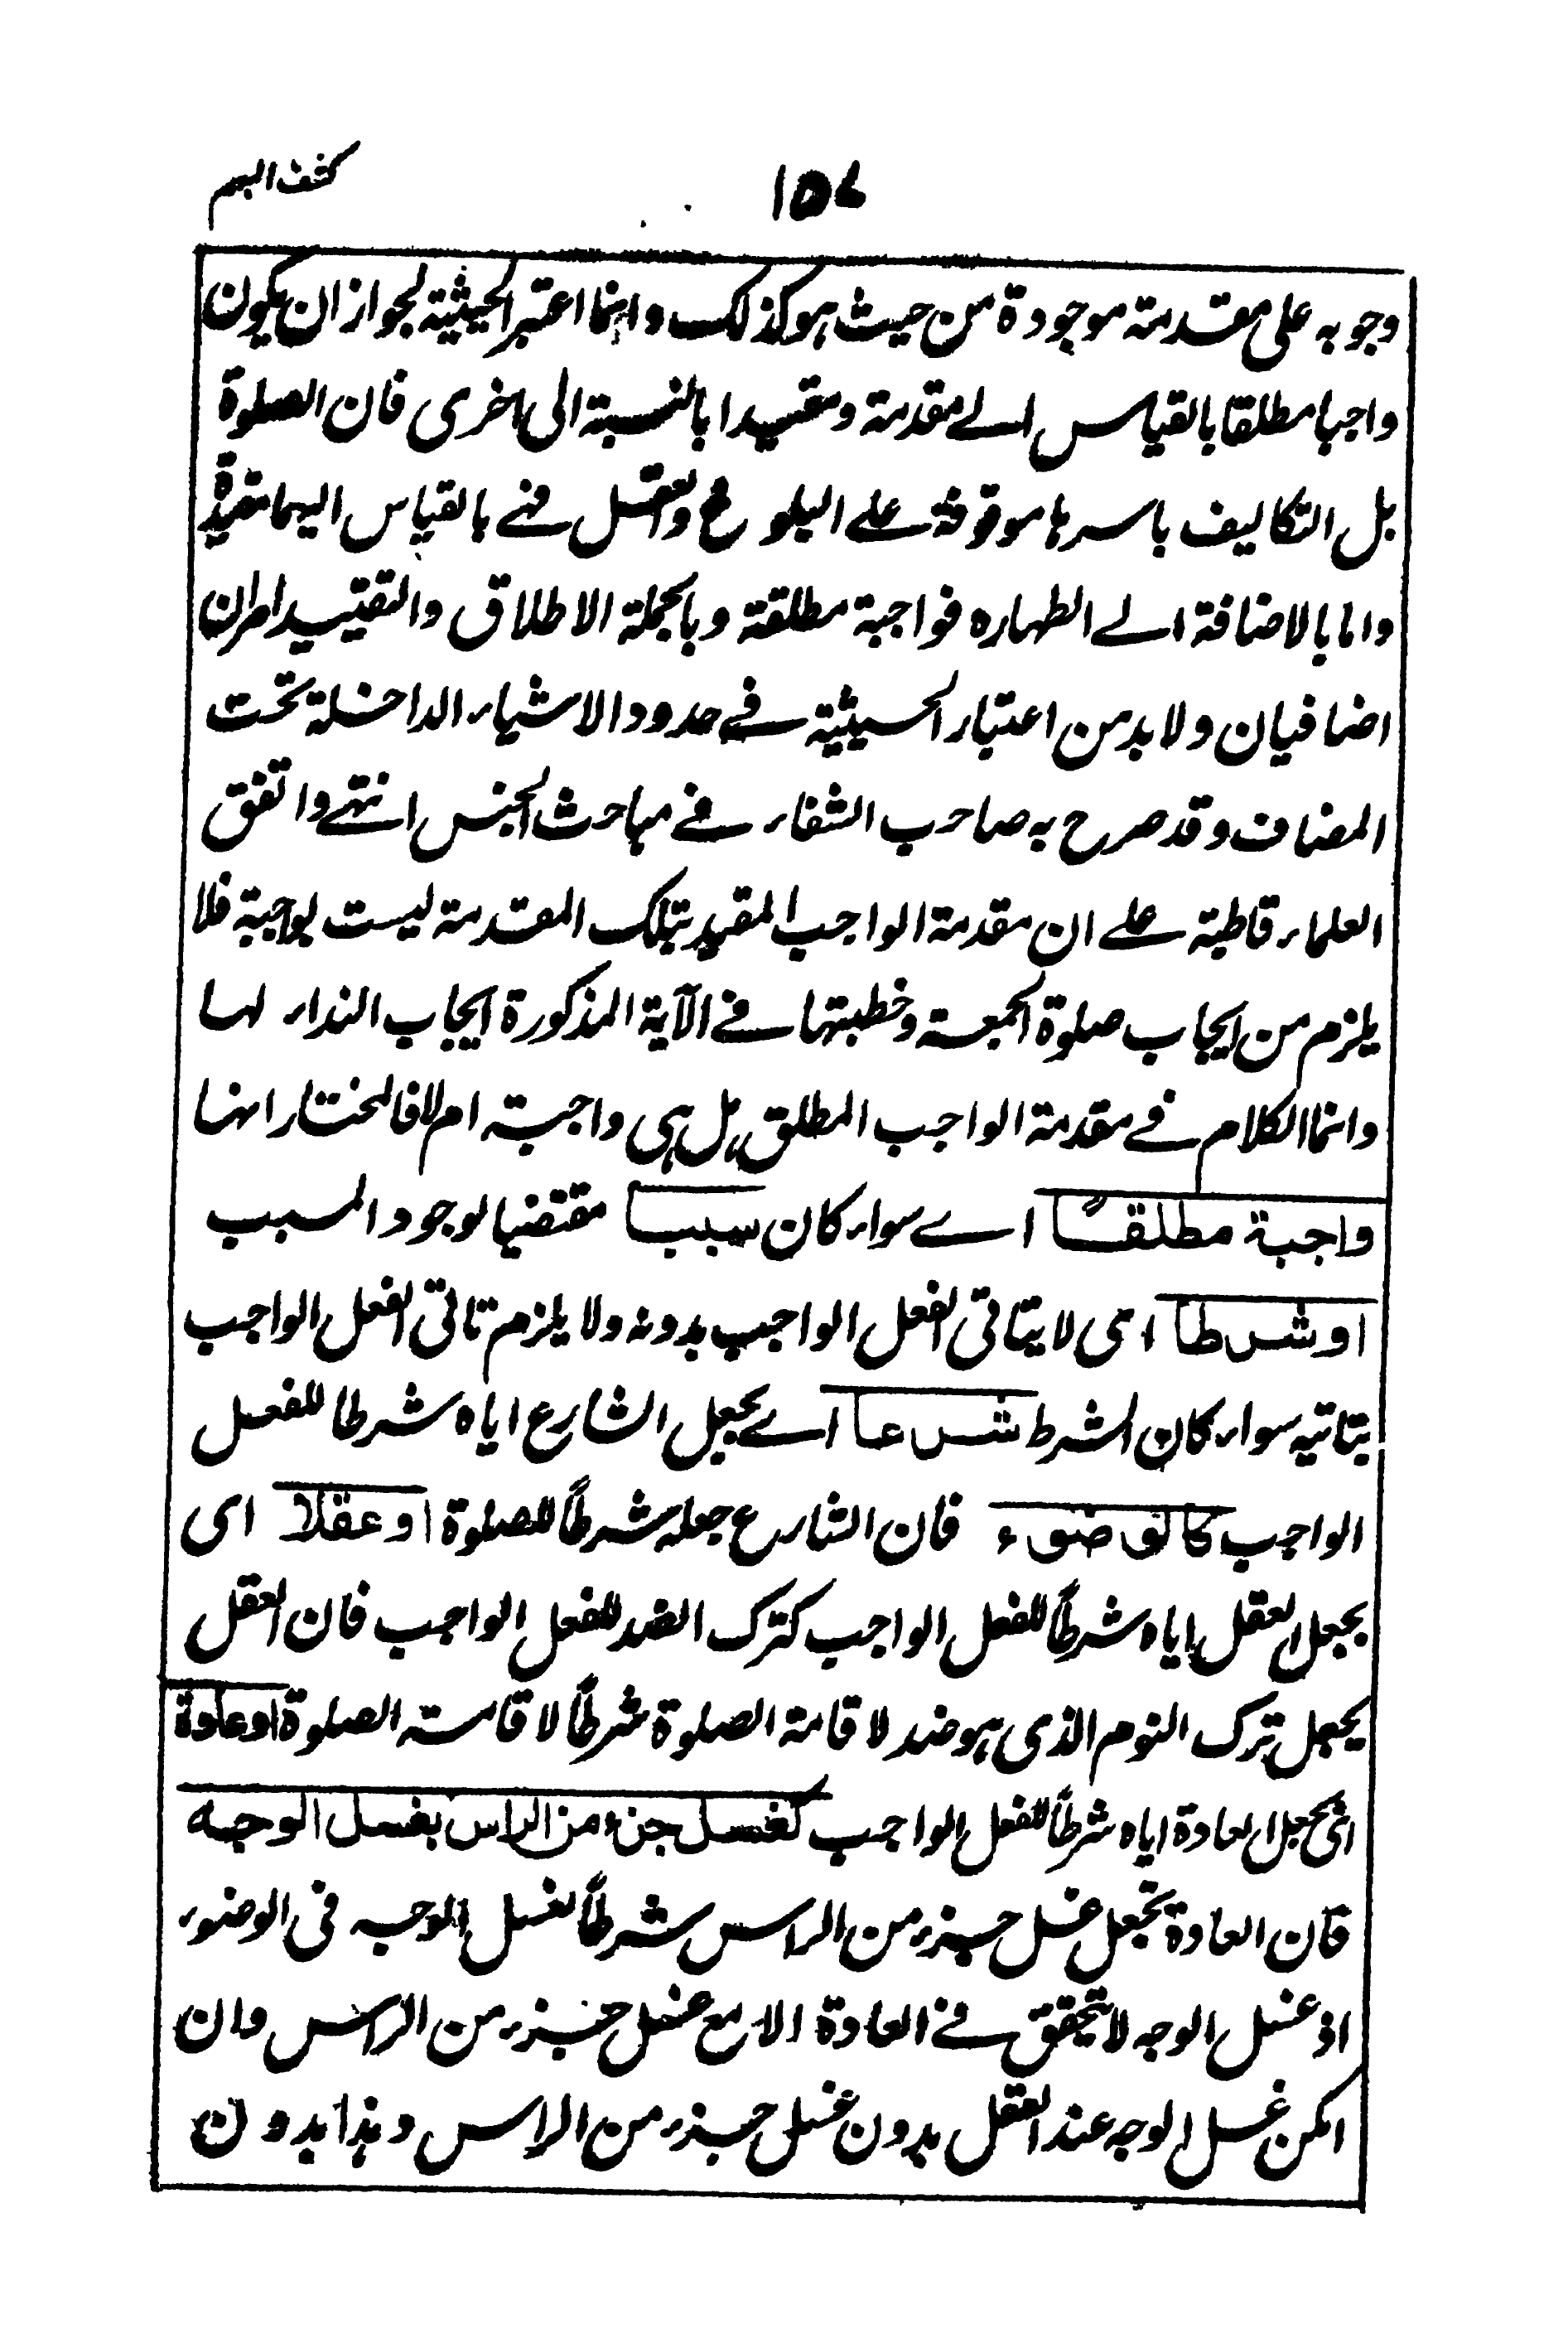 ١٥٧
كشف المبهم
وجوبه على مقدمة موجودة من حيث هو كذلك وانما اعتبر الحيثية لجواز ان يكون
واجبا مطلقا بالقياس الے مقدمة ومقيدا بالنسبة الى اخرى فان الصلوة
بل التكاليف باسرها موقوفة علے البلوغ والعقل فہے بالقياس اليهما مقيدة
واما بالاضافة الے الطهاره فواجبة مطلقة وبالجملة الاطلاق والتقييد امران
اضافيان ولا بد من اعتبار الحيثية فے حدود الاشياء الداخلة تحت
المضاف وقد صرح به صاحب الشفاء فے مباحث الجنس انتهے واتفق
العلماء قاطبة علے ان مقدمة الواجب المقيد بتلك المقدمة ليست بواجبة فلا
يلزم من ايجاب صلوة الجمعة وخطبتها فے الآية المذكورة ايجاب النداء لها
وانما الكلام فے مقدمة الواجب المطلق هل هى واجبة ام لا فالمختار انها
واجبة مطلقاً اے سواء كان سببا مقتضيا لوجود المسبب
او شرطا اى لا يتاتى الفعل الواجب بدونه ولا يلزم تاتى الفعل الواجب
بتاتيه سواء كان الشرط شرعا اے بجعل الشارع اياه شرطا للفعل
الواجب كالوضوء فان الشارع جعله شرطاً للصلوة او عقلا اى
بجعل العقل اياه شرطاً للفعل الواجب كترك الضد للفعل الواجب فان العقل
يجعل ترك النوم الذى هو ضد لاقامة الصلوة شرطاً لاقامة الصلوة او عادة
اى بجعل العادة اياه شرطاً للفعل الواجب كغسل جزء من الراس بغسل الوجه
فان العادة تجعل غسل جزء من الراس شرطاً لغسل الوجه فى الوضوء
اذ غسل الوجه لا يتحقق فے العادة الا مع غسل جزء من الراس وان
امكن غسل الوجه عند العقل بدون غسل جزء من الراس وهذا بدون